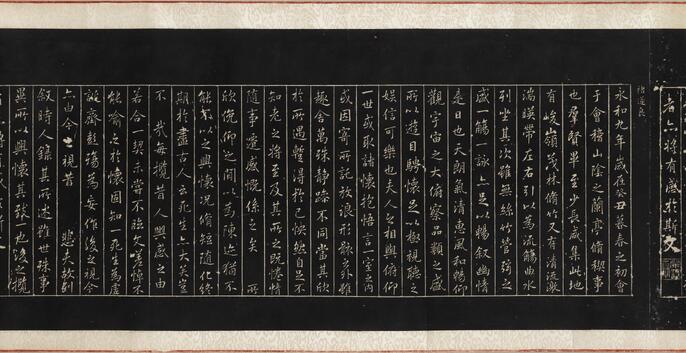 者亦將有感於斯文
褚遂良
永和九年歲在癸丑暮春之初會
于會稽山陰之蘭亭脩稧事
也羣賢畢至少長咸集此地
有峻嶺茂林脩竹又有清流激
湍暎帶左右引以為流觴曲水
列坐其次雖無絲竹管弦之
盛一觴一詠亦足以暢叙幽情
是日也天朗氣清惠風和暢仰
觀宇宙之大俯察品類之盛
所以遊目騁懷足以極視聽之
娛信可樂也夫人之相與俯仰
一世或取諸懷抱悟言一室之內
或因寄所託放浪形骸之外雖
趣舍萬殊靜躁不同當其欣
於所遇暫得於己怏然自足不
知老之將至及其所之既惓情
隨事遷感慨係之矣 所
欣俛仰之間以為陳迹猶不
能不以之興懷況脩短隨化終
期於盡古人云死生亦大矣豈
不 哉每攬昔人興感之由
若合一契未嘗不臨文嗟悼不
能喻之於懷固知一死生為虛
誕齊彭殤為妄作後之視今
亦由今之視昔 悲夫故列
叙時人錄其所述雖世殊事
異所以興懷其致一也後之攬